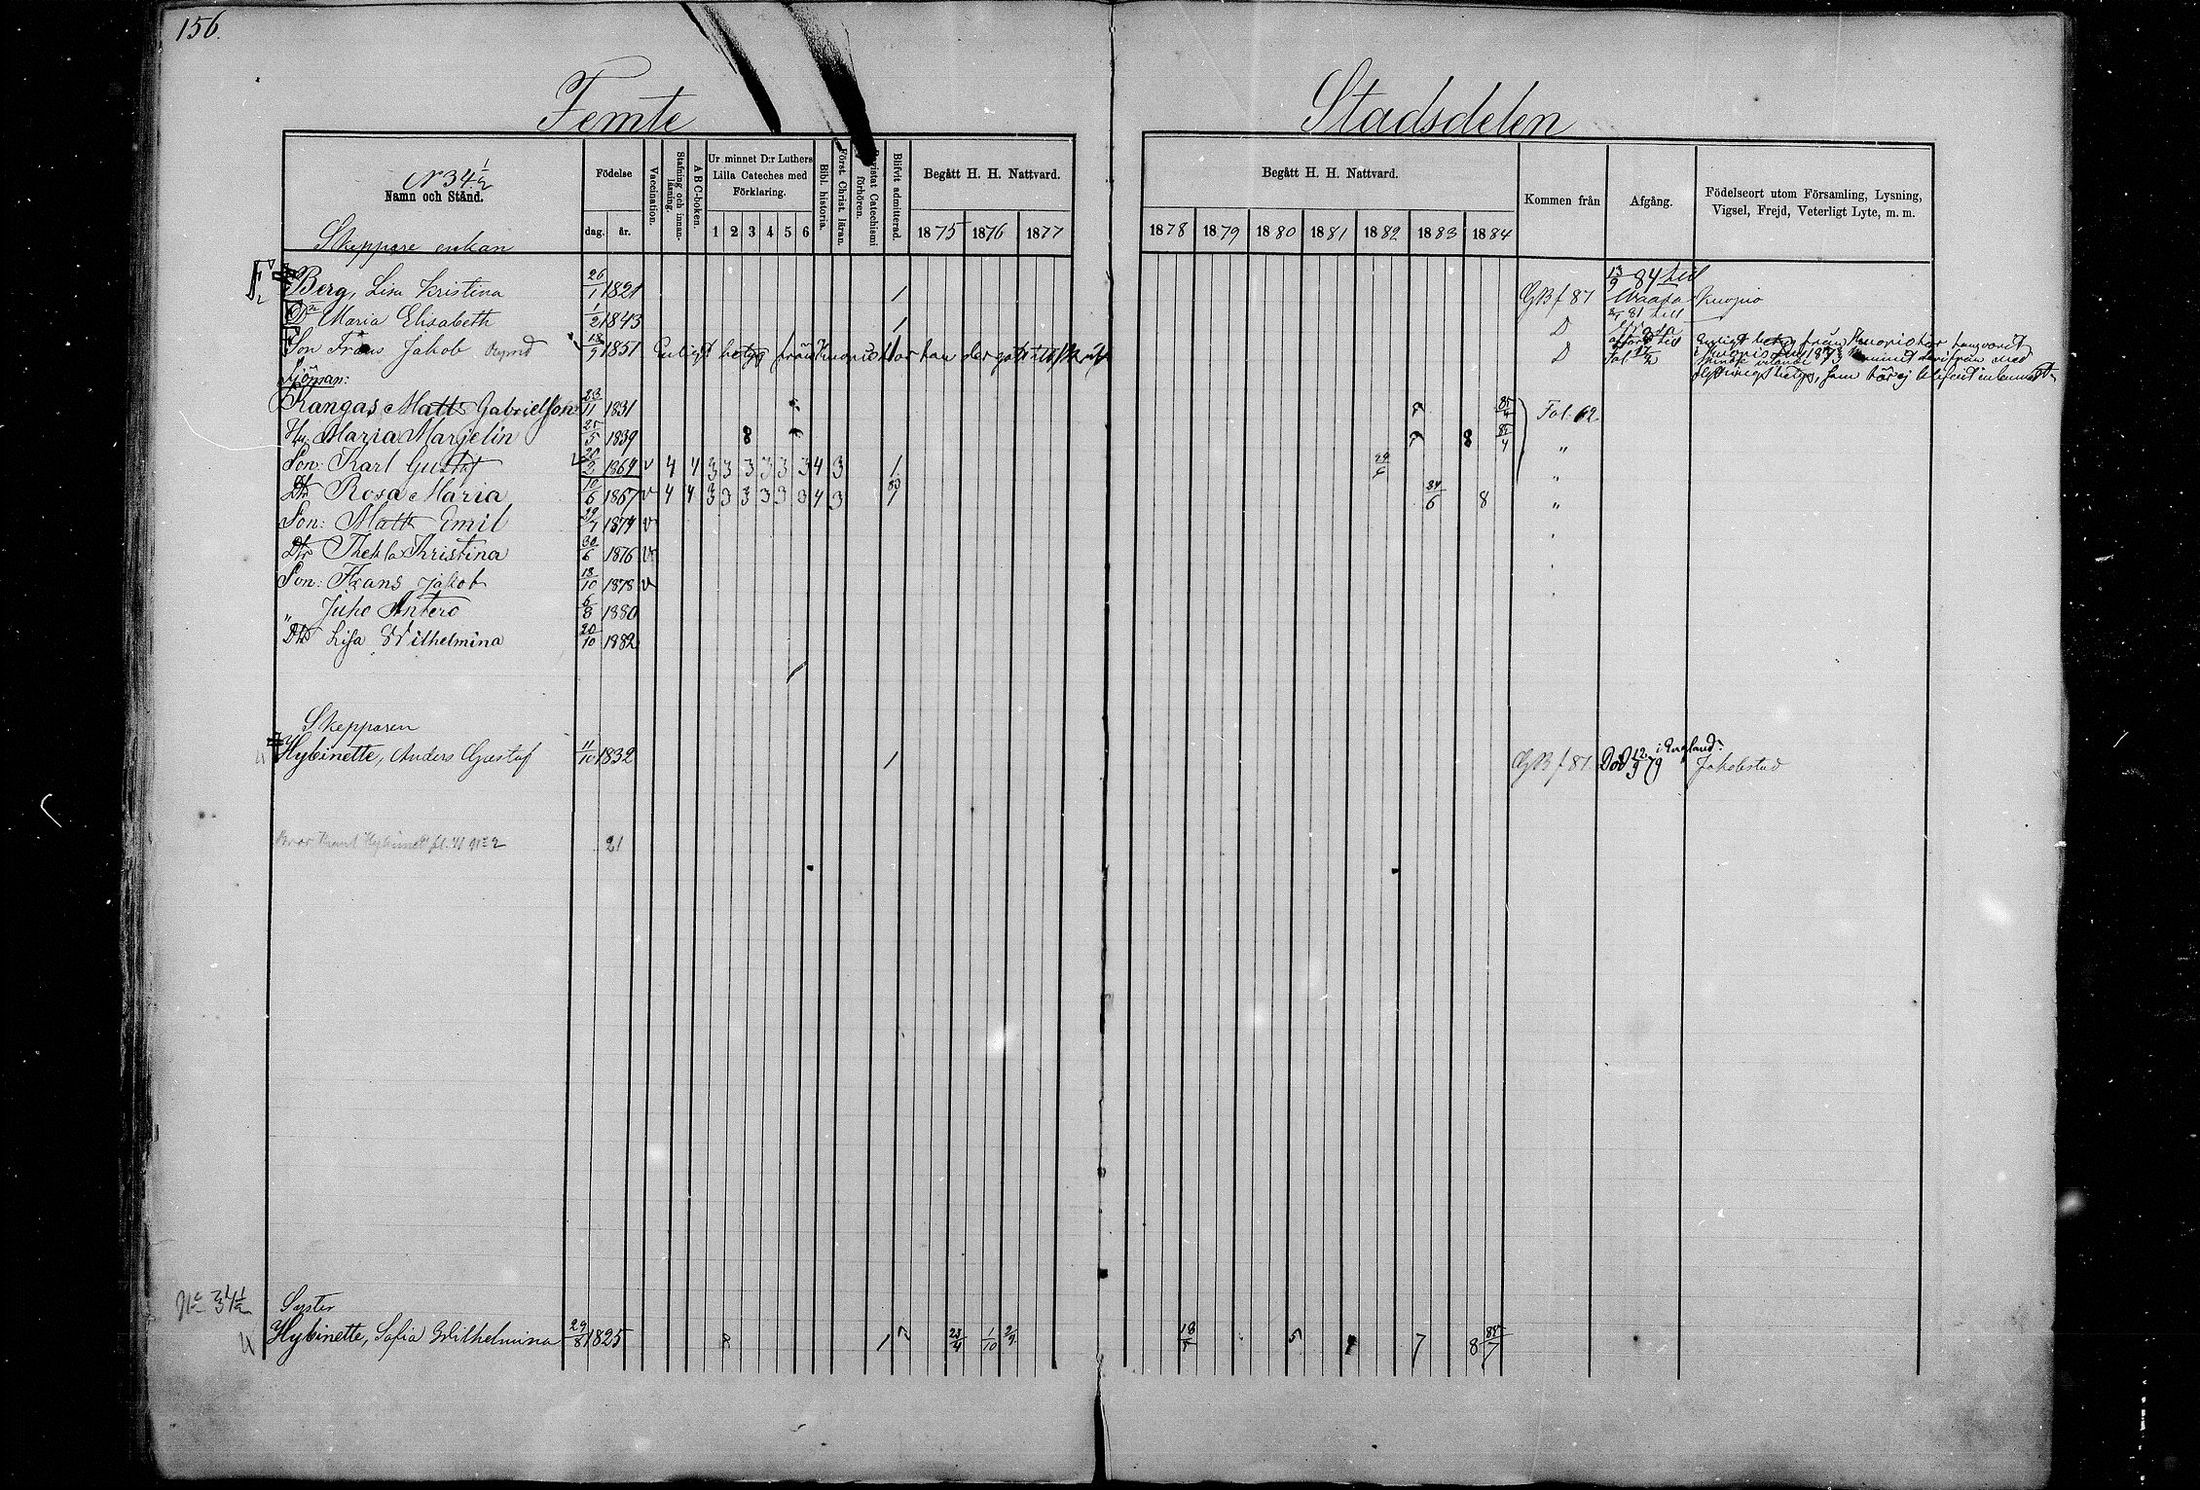 156.
Femte Stadsdelen
N 34 1/2
Namn och Stånd.
Födelse
dag. år.
Vaccination.
Stafning och innanläsning.
A B C-boken.
Ur minnet D:r Luthers Lilla Cateches med Förklaring.
1 2 3 4 5 6
Bibl. historia.
Först. Christ. läran.
Bevistat Catechismi förhören.
Blifvit admitterad.
Begått H. H. Nattvard.
1875 1876 1877
Begått H. H. Nattvard.
1878 1879 1880 1881 1882 1883 1884
Kommen från
Afgång.
Födelseort utom Församling, Lysning, Vigsel, Frejd, Veterligt Lyte, m. m.
Skeppare enkan
Berg, Lisa Kristina 26/1 1821 1 GB f 87 13/9 84 till Waasa Kuopio
Dr Maria Elisabeth 1/2 1843 1 D 81 till
Son Frans Jakob 18/9 1851 Enligt betyg från Kuopio har han der D
Enligt betyg från Kuopio har
Sjöman:
Kangas Matts Gabrielsson 23/11 1831 7 85/4 Fol. 62.
Hu: Maria Marjelin 25/5 1839 8 7 8 85/4 "
Son: Karl Gustaf 20/2 1864 v 4 4 3 3 3 3 3 3 4 3 1 29/6 "
Dtr Rosa Maria 10/6 1867 v 4 4 3 3 3 3 3 3 4 3 83/1 84/6 8 "
Son: Matts Emil 29/7 1874 v
Dtr Thekla Kristina 30/6 1876 v
Son: Frans Jakob 18/10 1878 v
" Juho Antero 6/8 1880
Dtr Lisa Wilhelmina 20/10 1882
Skepparen
Hybinette, Anders Gustaf 11/10 1832 1 GB f 87. Död 12/9 79 i England. Jakobstad
21
No 34 1/2 Syster
Hybinette, Sofia Wilhelmina 29/8 1825 8 1 7 23/4 1/10 2/9 18 5 7 8 85/7